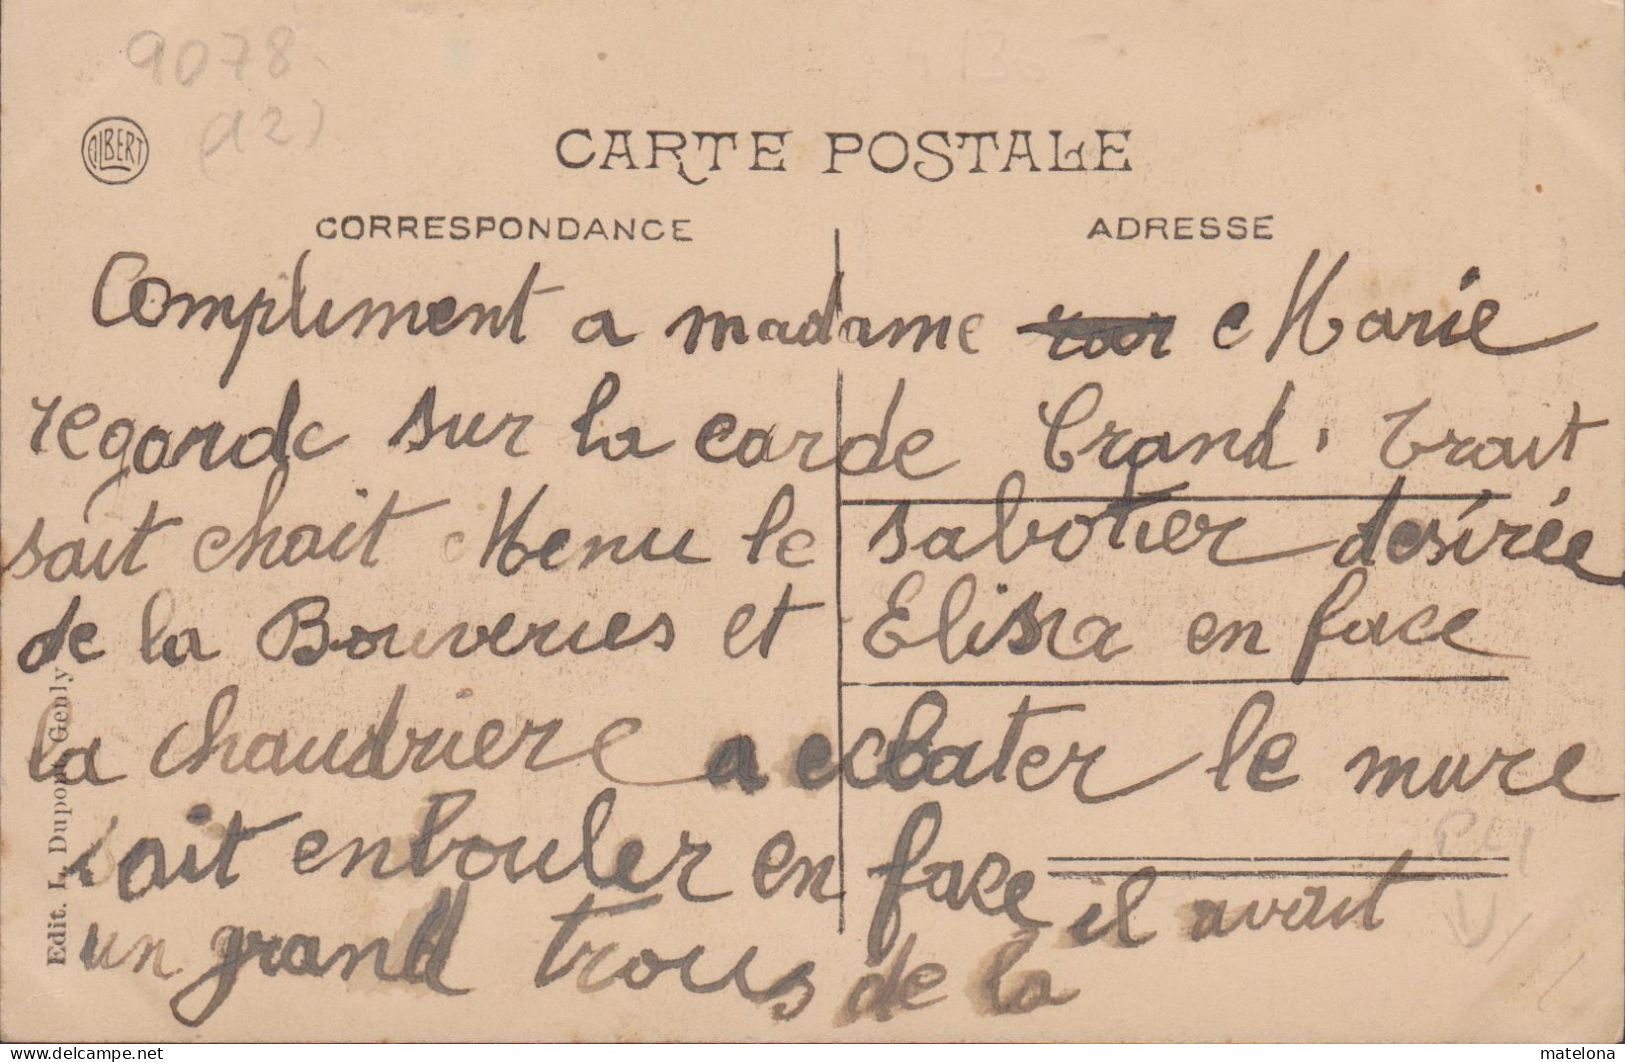 9078
(12)
ALBERT
CARTE POSTALE
CORRESPONDANCE
ADRESSE
Compliment a madame Marie
regarde sur la carde Grand, trait
sait chait Menu le sabotier desirée
de la Bouveries et Elisa en face
la chaudriere a eclater le mure
sait enbouler en face il avait
un grand trous de la
Edit. L. Dupont, Genly
delcampe.net
matelona